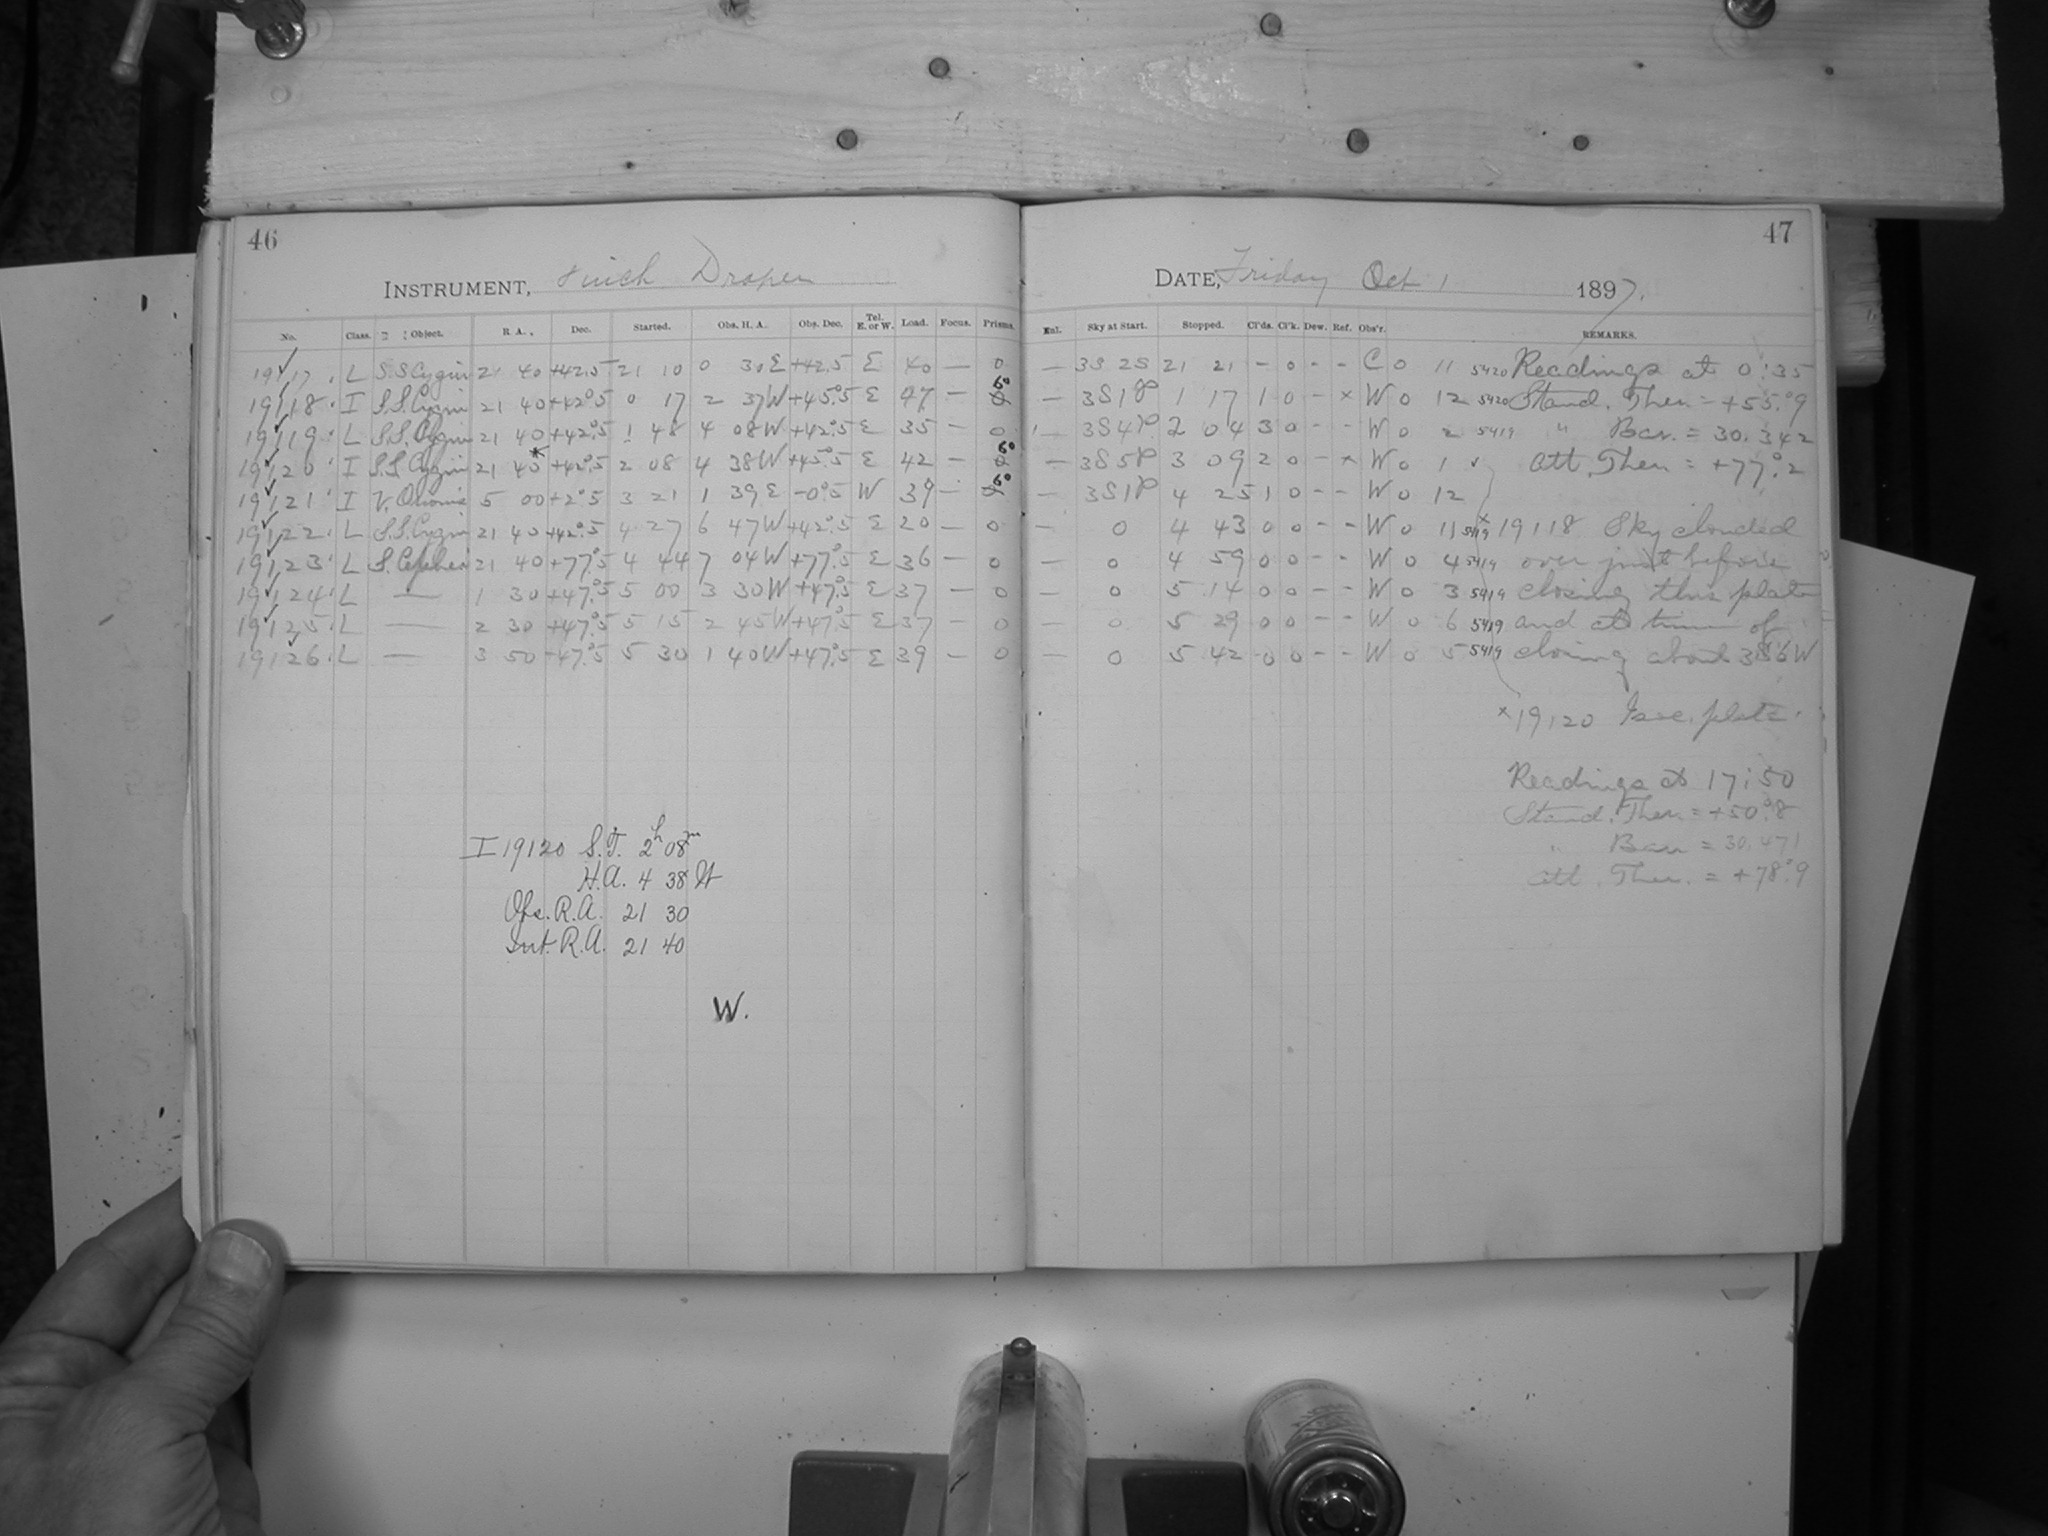 46
INSTRUMENT, 8 inch Draper
No. Class. Object. R. A., Dec. Started. Obs. H. A. Obs. Dec. Tel. E. or W. Load. Focus. Prisms.
19117 L S.S Cygni 21 40 +42.5 21 10 0 30 E +42.5 E 40 — 0
19118 I S.S. Cygni 21 40 +42°.5 0 17 2 37 W +45°.5 E 47 — 6°
19119 L S.S. Cygni 21 40 +42°.5 1 48 4 08 W +42°.5 E 35 — 0
19120 I S.S. Cygni 21 40* +42°.5 2 08 4 38 W +45°.5 E 42 — 6°
19121 I V. Orionis 5 00 +2°.5 3 21 1 39 E -0°.5 W 39 — 6°
19122 L S.S. Cygni 21 40 +42°.5 4 27 6 47 W +42°.5 E 20 — 0
19123 L S. Cephei 21 40 +77°.5 4 44 7 04 W +77°.5 E 36 — 0
19124 L — 1 30 +47°.5 5 00 3 30 W +47°.5 E 37 — 0
19125 L — 2 30 +47°.5 5 15 2 45 W +47°.5 E 37 — 0
19126 L — 3 50 +47°.5 5 30 1 40 W +47°.5 E 39 — 0
I 19120 S.T. 2h 08m
H.A. 4 38 W
Obs. R.A. 21 30
Int. R.A. 21 40
W.
47
DATE, Friday Oct 1 1897.
Enl. Sky at Start. Stopped. Cl'ds. Cl'k. Dew. Ref. Obs'r. REMARKS.
— 3S 2S 21 21 - 0 - - C 0 11 5420 Readings at 0:35
— 3S1P 1 17 1 0 - x W 0 12 5420 Stand. Ther. = +55.°9
— 3S4P 2 04 3 0 - - W 0 2 5419 " Bar. = 30.342
— 3S5P 3 09 2 0 - x W 0 1 Att. Ther. = +77°.2
— 3S1P 4 25 1 0 - - W 0 12
— 0 4 43 0 0 - - W 0 11 5419 x 19118 Sky clouded
— 0 4 59 0 0 - - W 0 4 5419 over just before
— 0 5 14 0 0 - - W 0 3 5419 closing this plate
— 0 5 29 0 0 - - W 0 6 5419 and at time of
— 0 5 42 0 0 - - W 0 5 5419 closing about 3S6W
x 19120 Isoc. plate.
Readings at 17:50
Stand. Ther. = +50°.8
" Bar = 30.471
Att. Ther. = +78°.9